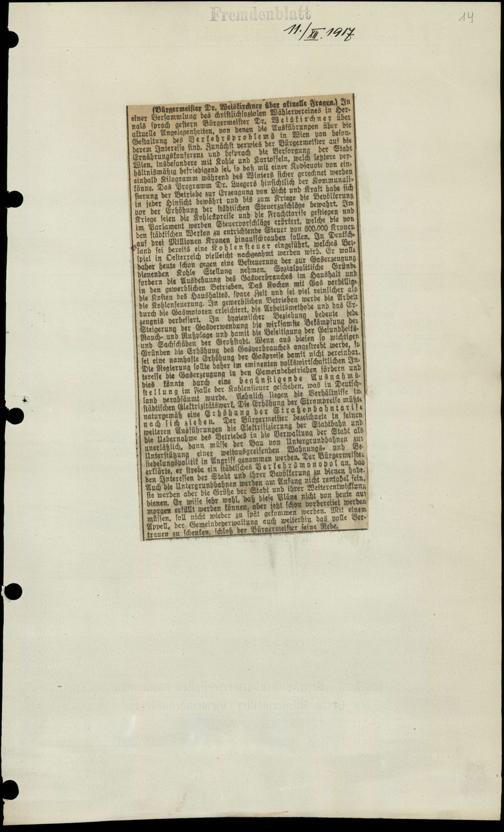 Fremdenblatt
14
11./XII. 1917
(Bürgermeister Dr. Weiskirchner über aktuelle Fragen.) In
einer Versammlung des christlichsozialen Wählervereines in Her-
nals sprach gestern Bürgermeister Dr. Weiskirchner über
aktuelle Angelegenheiten, von denen die Ausführungen über die
Gestaltung des Verkehrsproblems in Wien von beson-
derem Interesse sind. Zunächst verwies der Bürgermeister auf die
Ernährungskonferenz und besprach die Versorgung der Stadt
Wien, insbesondere mit Kohle und Kartoffeln, welch letztere ver-
hältnismäßig befriedigend sei, so daß mit einer Kopfquote von ein-
einhalb Kilogramm während des Winters sicher gerechnet werden
könne. Das Programm Dr. Luegers hinsichtlich der Kommunali-
sierung der Betriebe zur Erzeugung von Licht und Kraft habe sich
in jeder Hinsicht bewährt und bis zum Kriege die Bevölkerung
vor der Erhöhung der städtischen Steuerzuschläge bewahrt. Im
Kriege seien die Kohlenpreise und die Frachttarife gestiegen und
im Parlament werden Steuervorschläge erörtert, welche die von
den städtischen Werken zu entrichtende Steuer von 600.000 Kronen
auf drei Millionen Kronen hinaufschrauben sollen. In Deutsch-
land sei bereits eine Kohlensteuer eingeführt, welches Bei-
spiel in Oesterreich vielleicht nachgeahmt werden wird. Er wolle
daher heute schon gegen eine Besteuerung der zur Gaserzeugung
dienenden Kohle Stellung nehmen. Sozialpolitische Gründe
fordern die Ausdehnung des Gasverbrauches im Haushalt und
in den gewerblichen Betrieben. Das Kochen mit Gas verbillige
die Kosten des Haushaltes, spare Zeit und sei viel reinlicher als
die Kohlenfeuerung. In gewerblichen Betrieben werde die Arbeit
durch die Gasmotoren erleichtert, die Arbeitsmethode und das Er-
zeugnis verbessert. In hygienischer Beziehung bedeute jede
Steigerung der Gasverwendung die wirksamste Bekämpfung der
Rauch- und Rußplage und damit die Beseitigung der Gesundheits-
und Sachschäden der Großstadt. Wenn aus diesen so wichtigen
Gründen die Erhöhung des Gasverbrauches angestrebt werde, so
sei eine namhafte Erhöhung der Gaspreise damit nicht vereinbar.
Die Regierung sollte daher im eminenten volkswirtschaftlichen In-
teresse die Gaserzeugung in den Gemeindebetrieben fördern und
dies könnte durch eine begünstigende Ausnahms-
stellung im Falle der Kohlensteuer geschehen, was in Deutsch-
land verabsäumt wurde. Aehnlich liegen die Verhältnisse im
städtischen Elektrizitätswerk. Die Erhöhung der Strompreise müßte
naturgemäß eine Erhöhung der Straßenbahntarife
nach sich ziehen. Der Bürgermeister bezeichnete in seinen
weiteren Ausführungen die Elektrifizierung der Stadtbahn und
die Uebernahme des Betriebes in die Verwaltung der Stadt als
unerläßlich, dann müsse der Bau von Untergrundbahnen zur
Unterstützung einer weitausgreifenden Wohnungs- und Be-
siedelungspolitik in Angriff genommen werden. Der Bürgermeister
erklärte, er strebe ein städtisches Verkehrsmonopol an, das
den Interessen der Stadt und ihrer Bevölkerung zu dienen habe.
Auch die Untergrundbahnen werden am Anfang nicht rentabel sein,
sie werden aber die Größe der Stadt und ihrer Weiterentwicklung
dienen. Er wisse sehr wohl, daß diese Pläne nicht von heute auf
morgen erfüllt werden können, aber jetzt schon vorbereitet werden
müssen, soll nicht wieder zu spät gekommen werden. Mit einem
Appell, der Gemeindeverwaltung auch weiterhin das volle Ver-
trauen zu schenken, schloß der Bürgermeister seine Rede.